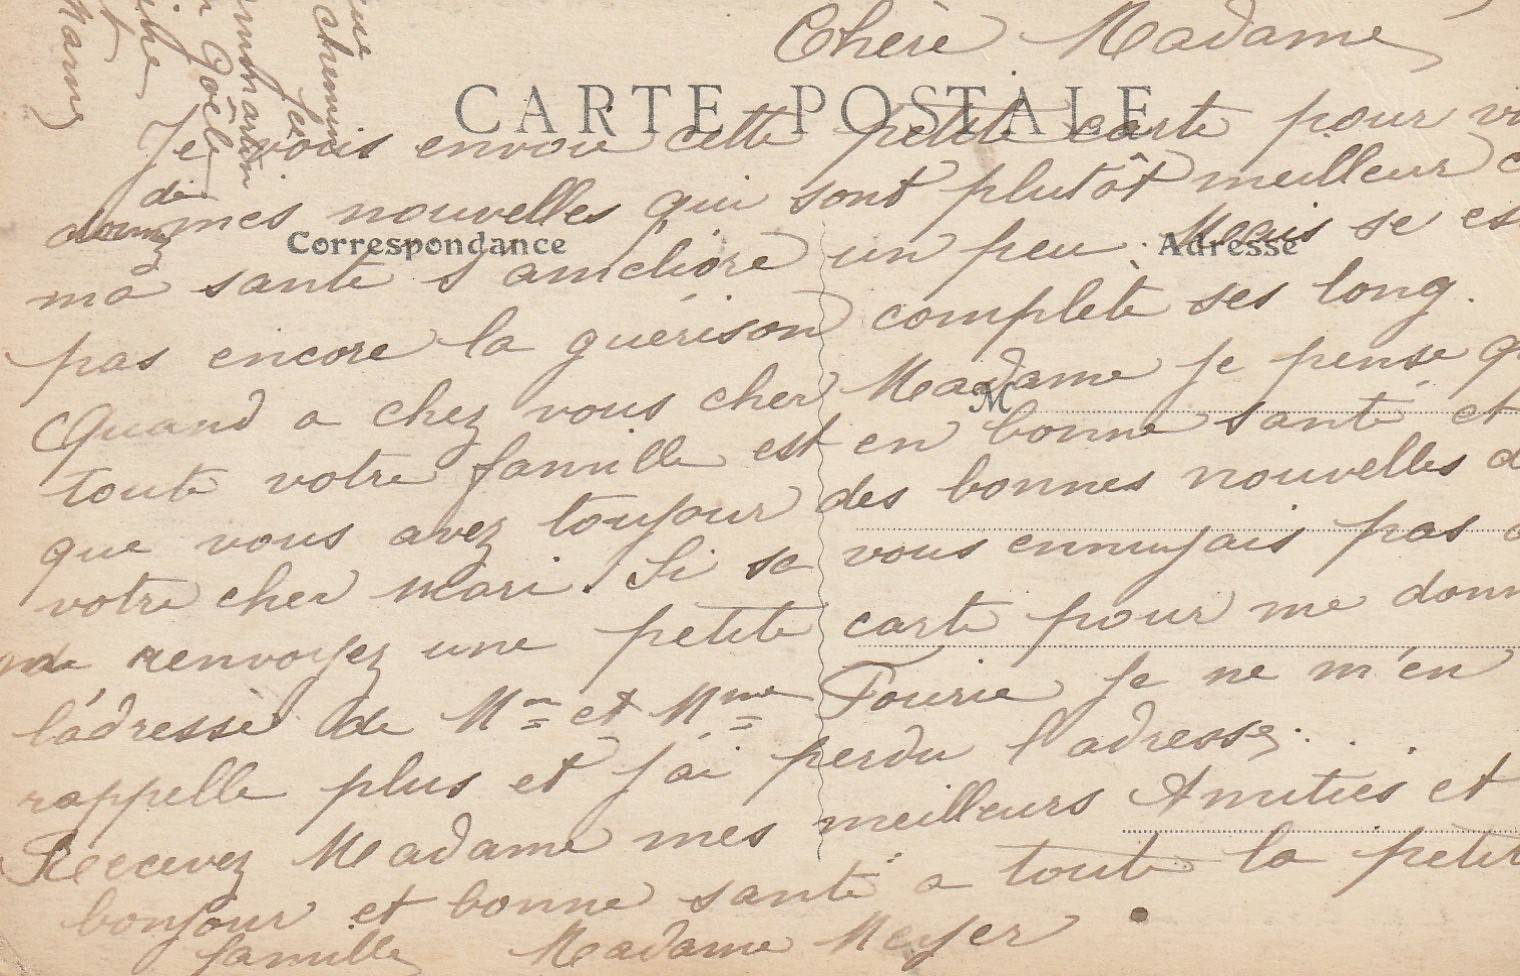 Chère Madame
CARTE POSTALE
Je vous envoie cette petite carte pour
de mes nouvelles qui sont plutôt meilleur
Correspondance
Adresse
ma santé s'améliore un peu. Mais se
pas encore la guérison complète ses long.
Quand a chez vous cher Madame je pense
M
toute votre famille est en bonne santé et
que vous avez toujour des bonnes nouvelles
votre cher Mari. Si sa vous ennuyais pas
de renvoyez une petite carte pour me
l'adresse de Mr et Mme Fourie je ne m'en
rappelle plus et j'ai perdu l'adresse.
Reecevez Madame mes meilleurs Amitiés et
bonjour et bonne santé a toute la
famille Madame Meyer
chemin